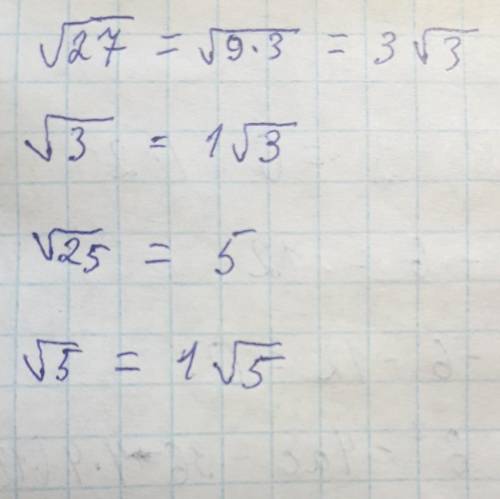 √27 = √9·3 = 3√3
√3 = 1√3
√25 = 5
√5 = 1√5